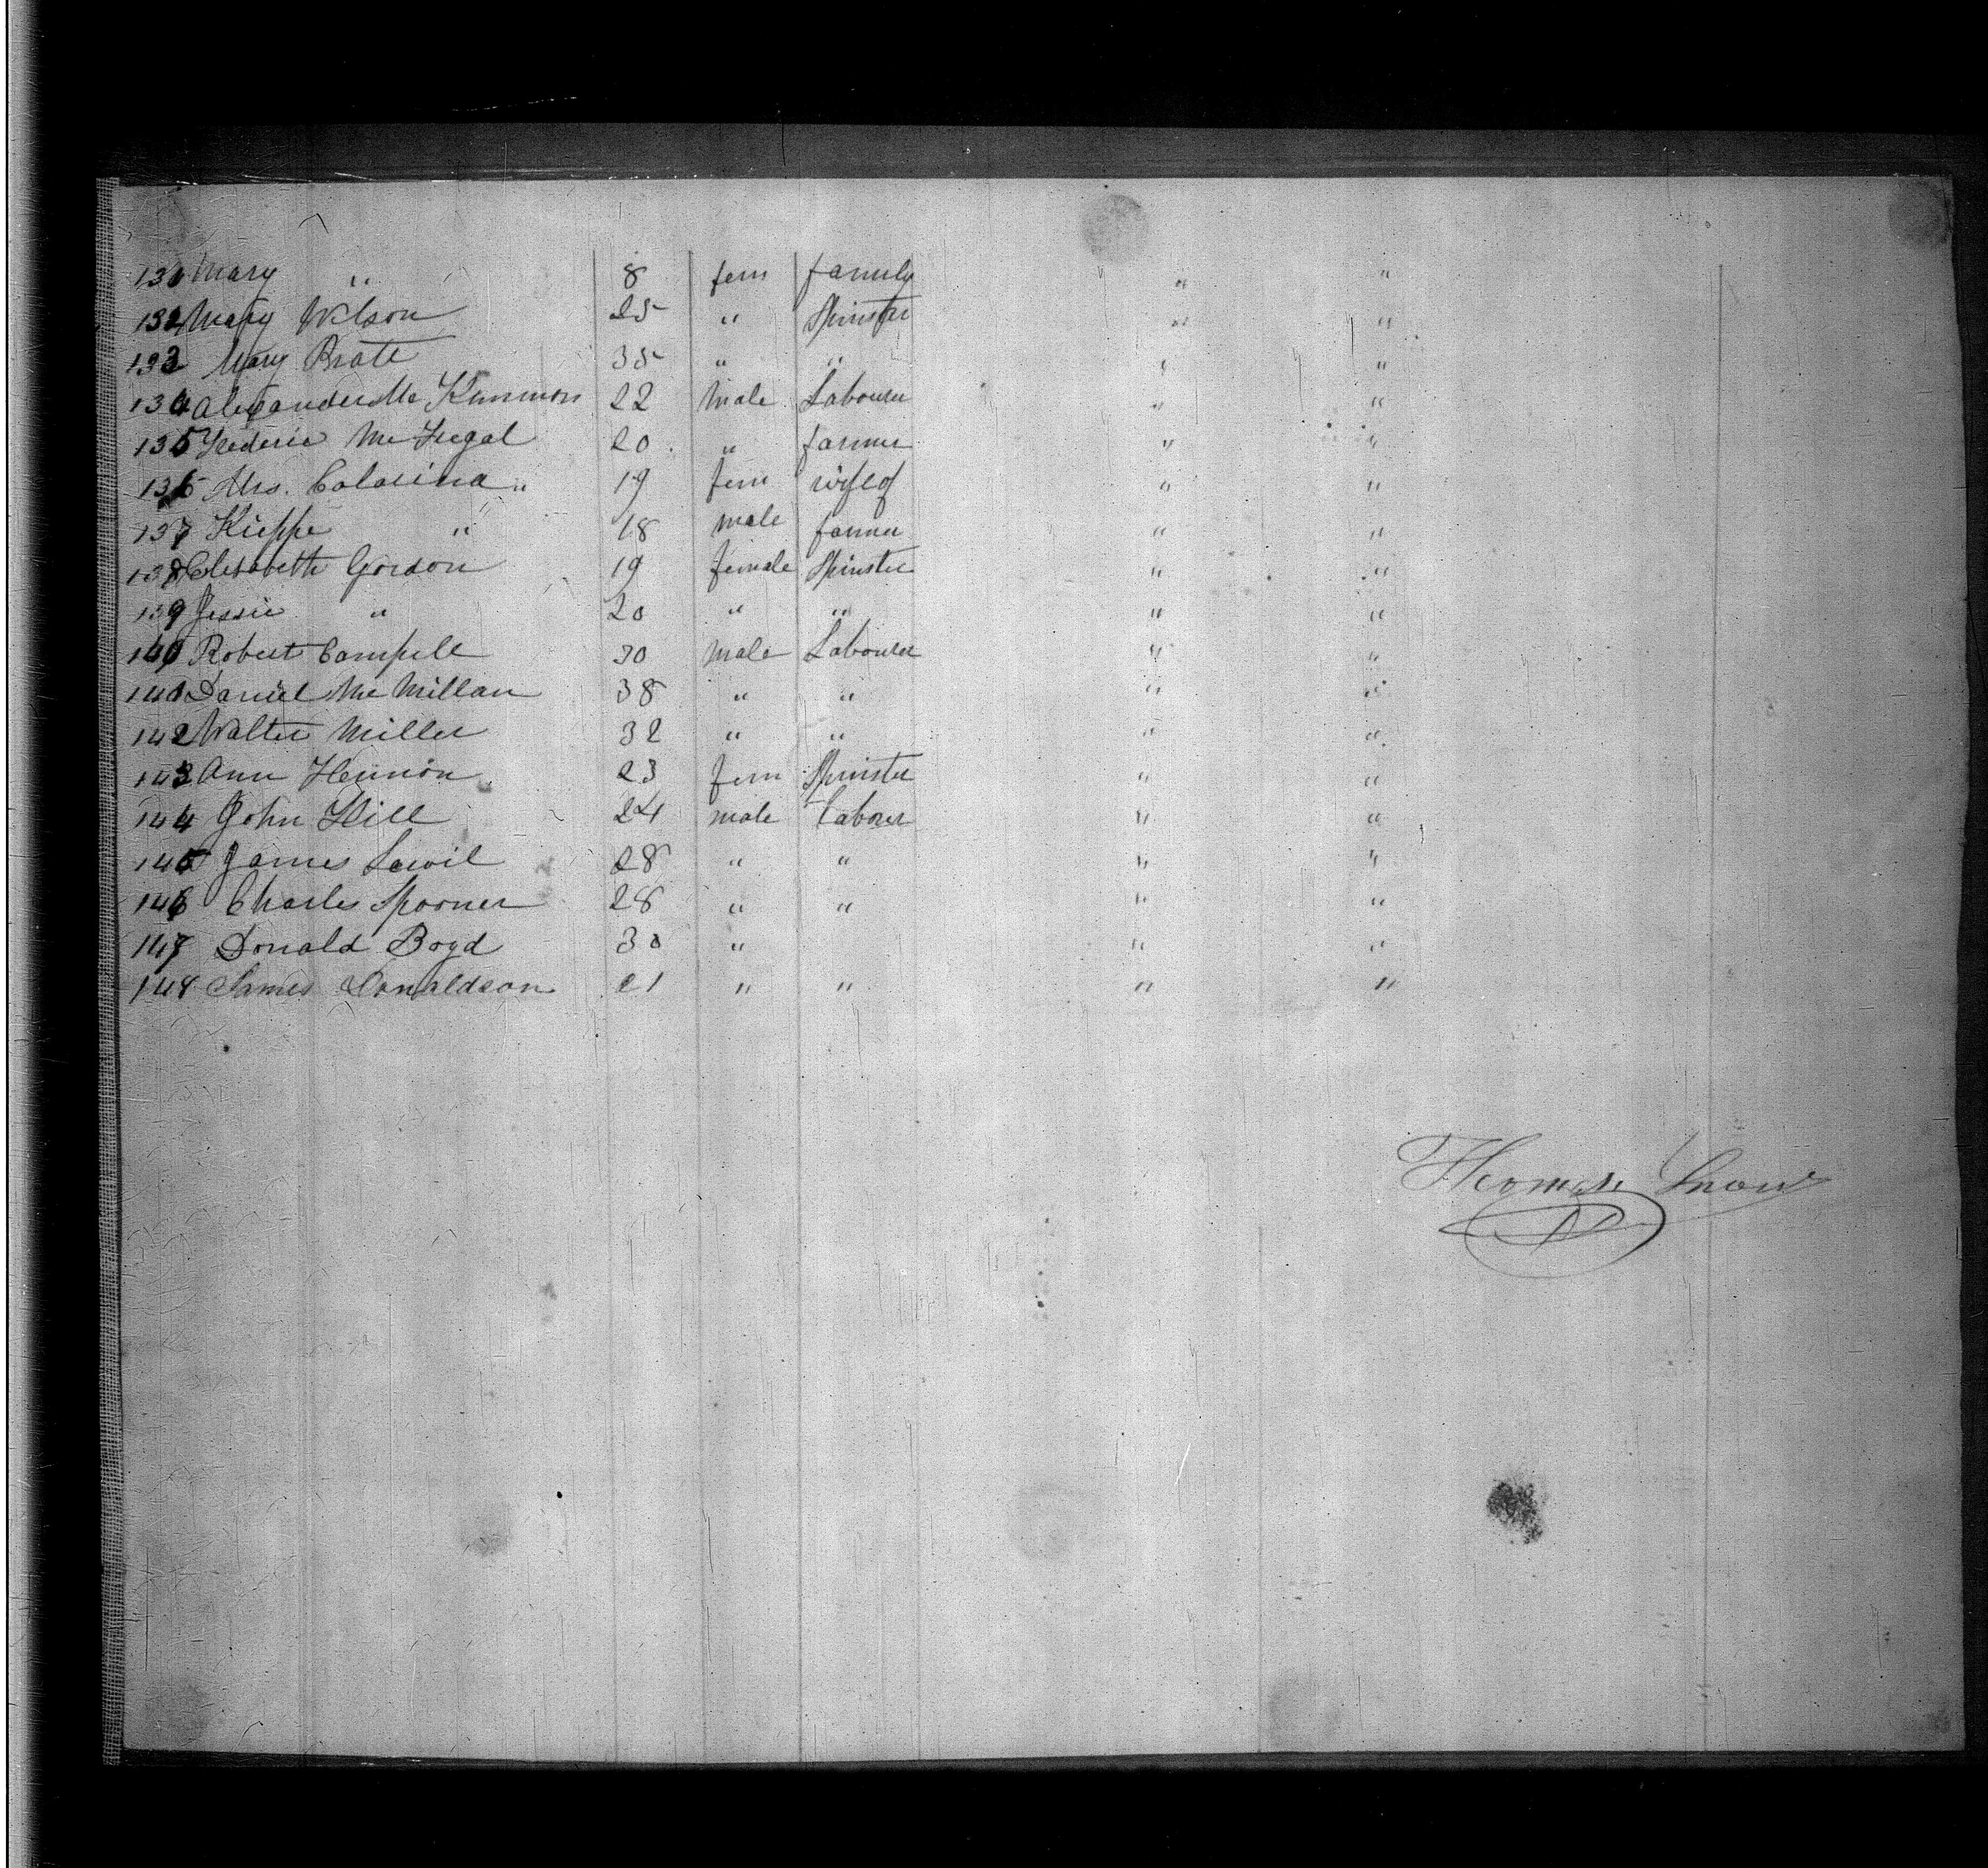 131 Mary " 8 fem family " "
132 Mary Wilson 25 " Spinster " "
133 Mary Bratt 35 " " " "
134 Alexander Mc Kinnnon 22 Male Labourer " "
135 Frederic Mc Fregal 20 " farmer " "
136 Mrs. Calarina " 19 fem wife of " "
137 " 18 male farmer " "
138 Elisabeth Gordon 19 female Spinster " "
139 Jessie " 20 " " " "
140 Robert Campell 30 Male Labourer " "
141 Daniel Mc Millan 38 " " " "
142 Walter Miller 32 " " " "
143 Ann 23 fem Spinster " "
144 John Hill 24 male Labourer " "
145 James 28 " " " "
146 Charles Spooner 28 " " " "
147 Donald Boyd 30 " " "
148 James Donaldson 21 " " " "
Thomas Snow